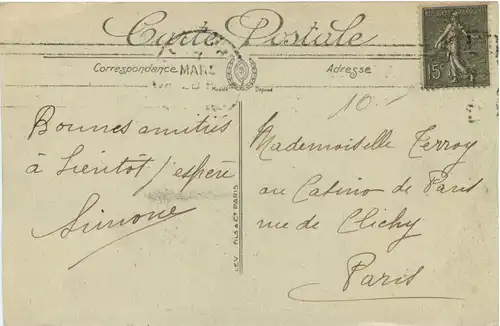 Carte Postale
Correspondance
Adresse
MARS
Modèle Déposé
15c
10.-
Bonnes amitiés
à bientôt j'espère
Simone
Mademoiselle Terroy
au Casino de Paris
rue de Clichy
Paris
LEVY FILS & Cie PARIS